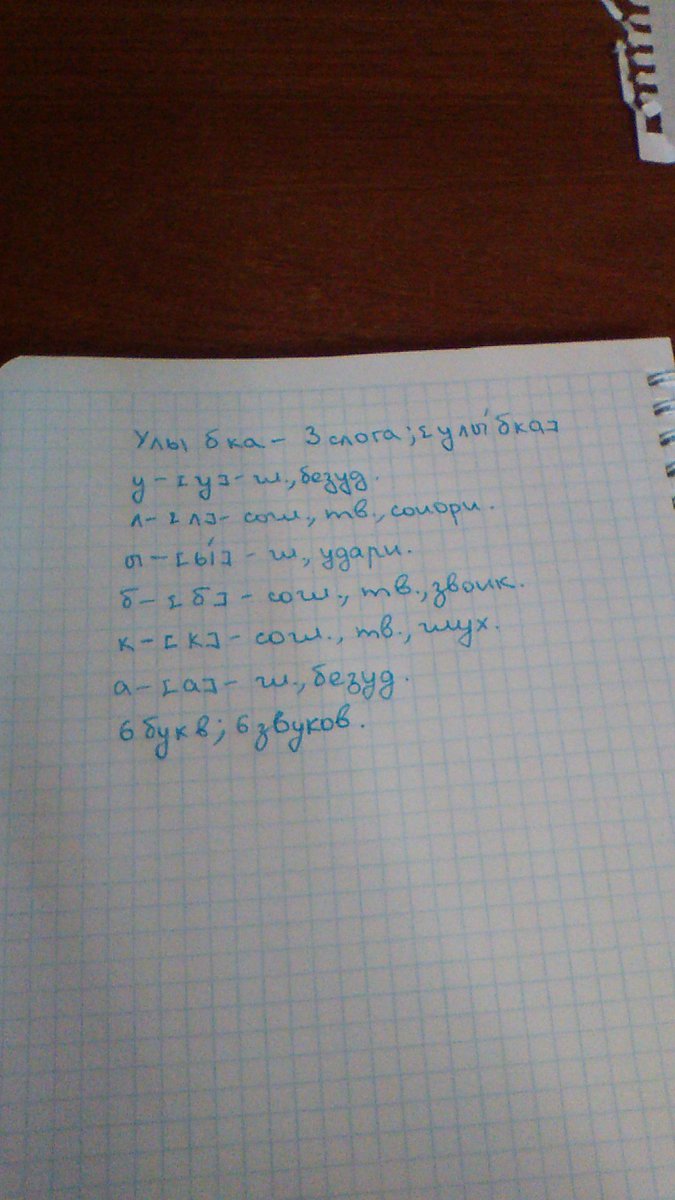 Улыбка - 3 слога; [улы́бка]
у - [у] - гл., безуд.
л - [л] - согл., тв., сонорн.
ы - [ы́] - гл, ударн.
б - [б] - согл., тв., звонк.
к - [к] - согл., тв., глух.
а - [а] - гл., безуд.
6 букв; 6 звуков.